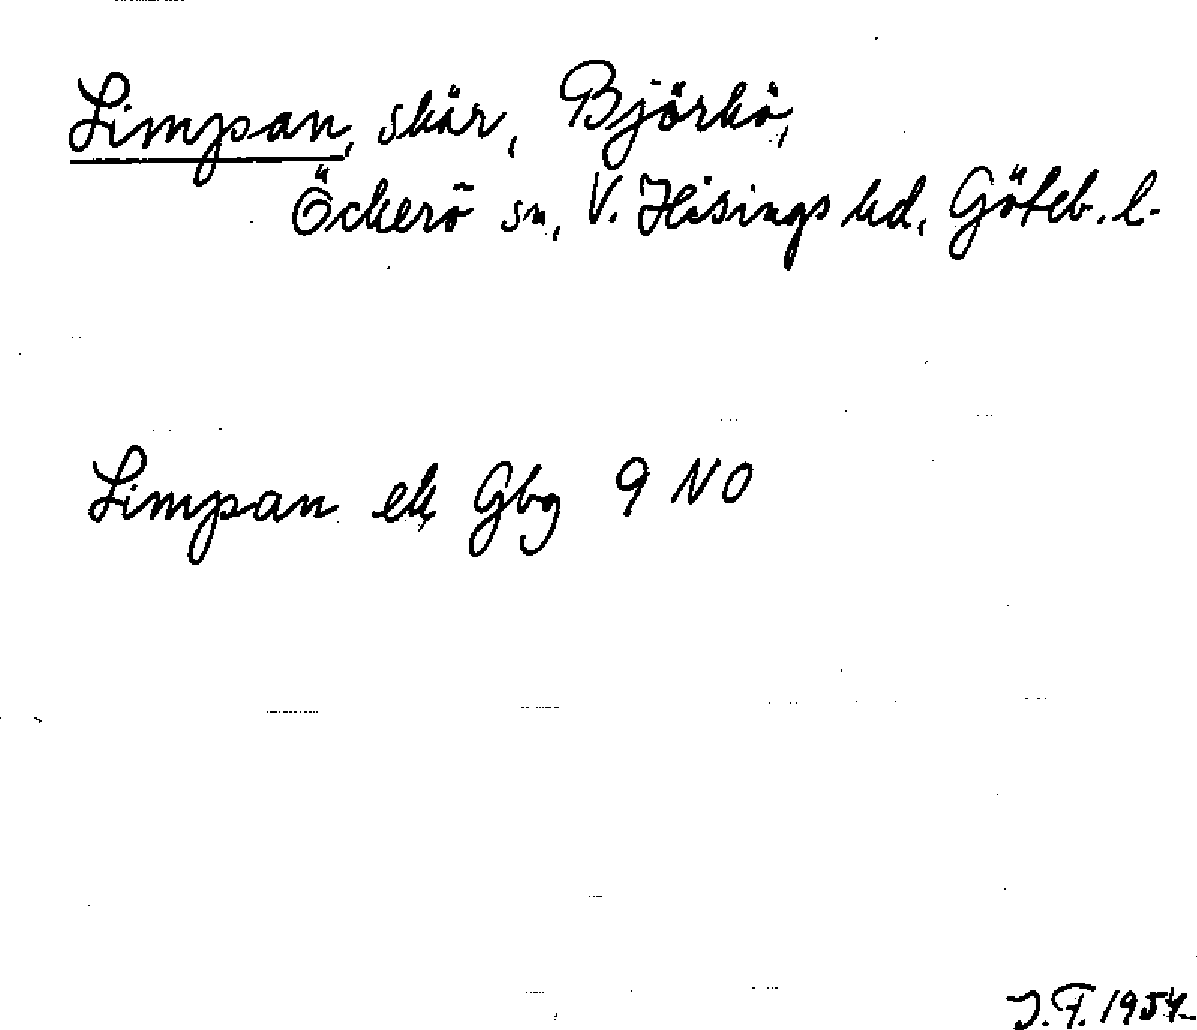 Limpan, skär, Björkö,
Öckerö sn, V. Hisings hd, Göteb. l.
Limpan ek Gbg 9 NO
J.F. 1957